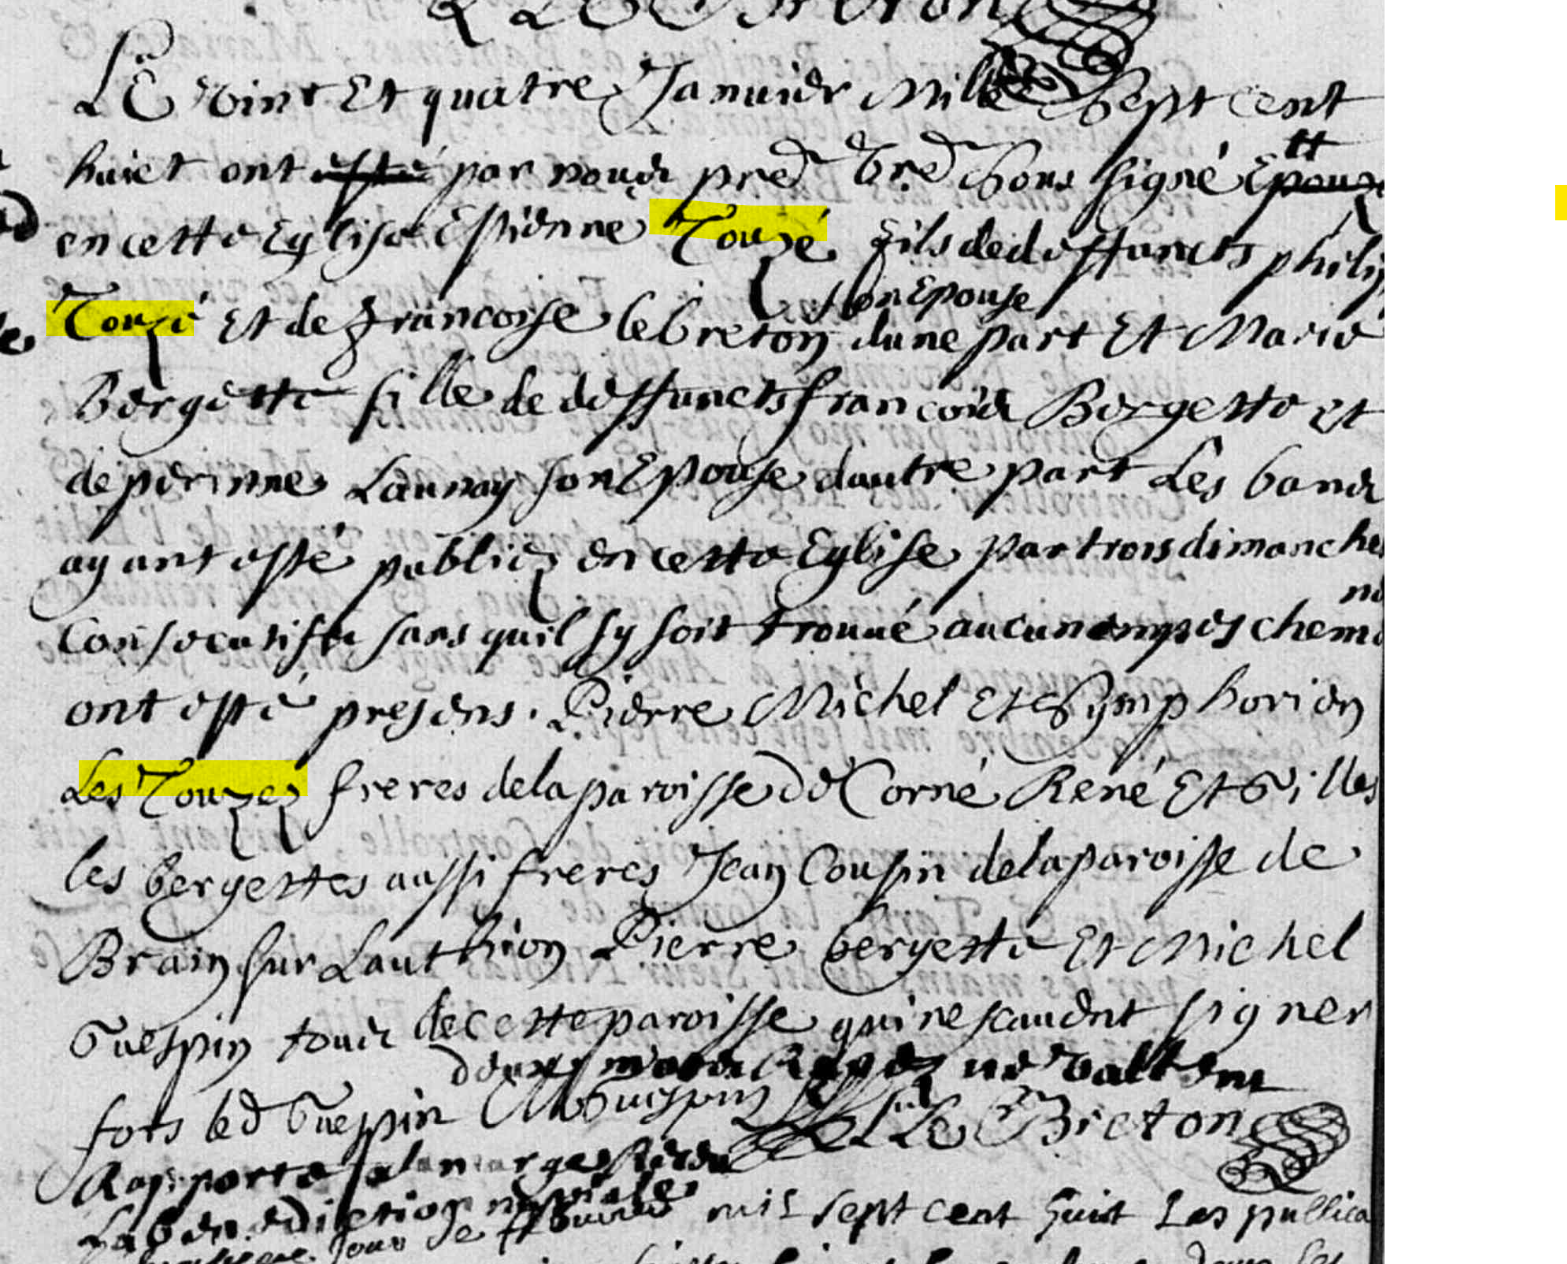 Le Breton
LE vint Et quatre Januier Mille Sept cent
huict ont esté par nous pred Bred Sous signé Epouzé
tt
en cette Eglise Estienne Touzé fils de deffuncts philip
son Epouse
Touzé Et de francoise le breton dune part Et Marie
Bergette fille de deffuncts francois Bergette et
de perinne Launay son Epouse dautre part Les bans
ayant esté publiez en cette Eglise par trois dimanches
Consecutifs sans quil sy soit trouué aucun empeschem
ont esté presens. Pierre Michel Et Symphorien
Les Touzez freres de la paroisse de Corné René Et Gilles
les bergettes aussi freres Jean Cousin de la paroisse de
Brain sur Lauthion Pierre bergette Et Michel
Guespin tous de cette paroisse qui ne scauent signer
deux mots Rayez ne vallent
fors led Guespin M Guespin Le Breton
Rapporté a la marge
La benediction nuptiale
jour de mil sept cent huit Les publica